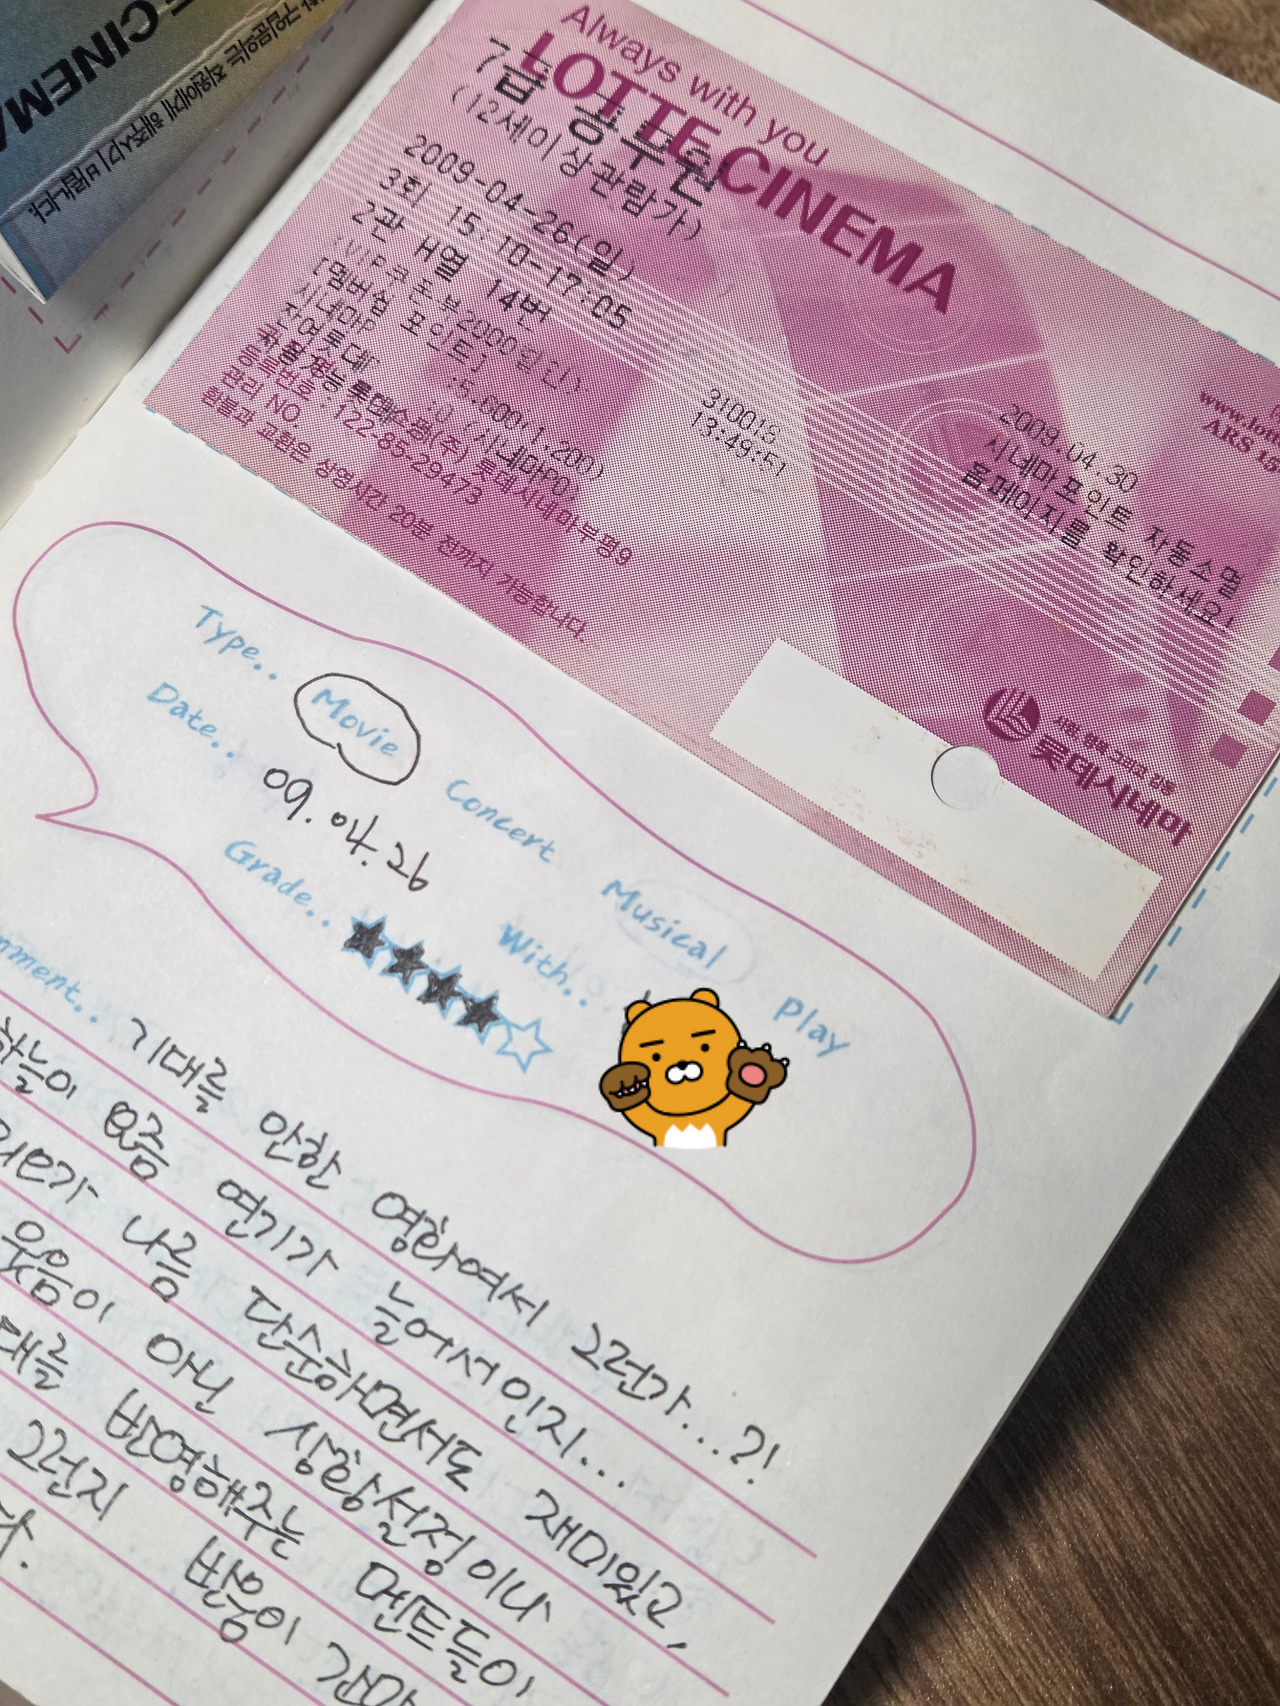 CINEMA
Always with you
LOTTE CINEMA
7급 공무원
(12세이상관람가)
2009-04-26(일)
3회 15:10-17:05
2관 H열 14번
[멤버쉽 포인트]
시네마P :5,600(1,200)
잔여롯데P :0 (시네마P0)
310018
13:49:51
2009.04.30
시네마포인트 자동소멸
홈페이지를 확인하세요!
등록번호 : 122-85-29473
관리 NO.
환불과 교환은 상영시간 20분 전까지 가능합니다.
www.lott
ARS 15
사랑 행복 그리고 감동
롯데시네마
Type.. Movie Concert Musical Play
Date.. 09. 04. 26 With..
Grade..
mment.. 기대를 안한 영화여서 그런가...?!
하늘이 요즘 연기가 늘어서인지...
나름 단순하면서도 재미있고,
웃음이 아닌 상황설정이나
대를 반영해주는 멘트들이
그런지 반응이
다.